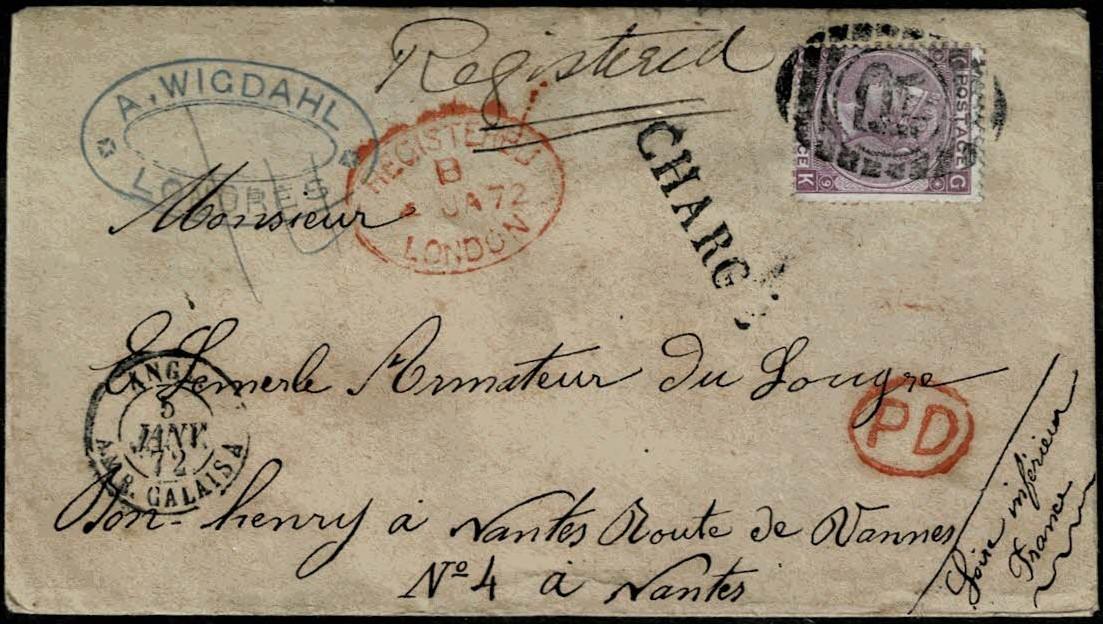 Registered
A. WIGDAHL
LONDRES
REGISTERED
B
JA 72
LONDON
CHARGÉ
POSTAGE
K
9
G
Monsieur
E Lemerle Armateur Du Lougre
ANGL.
5
JANV.
72
AMB. CALAIS A
PD
Bon-henry à Nantes Route de Vannes
Nº 4 à Nantes
Loire inférieur
France